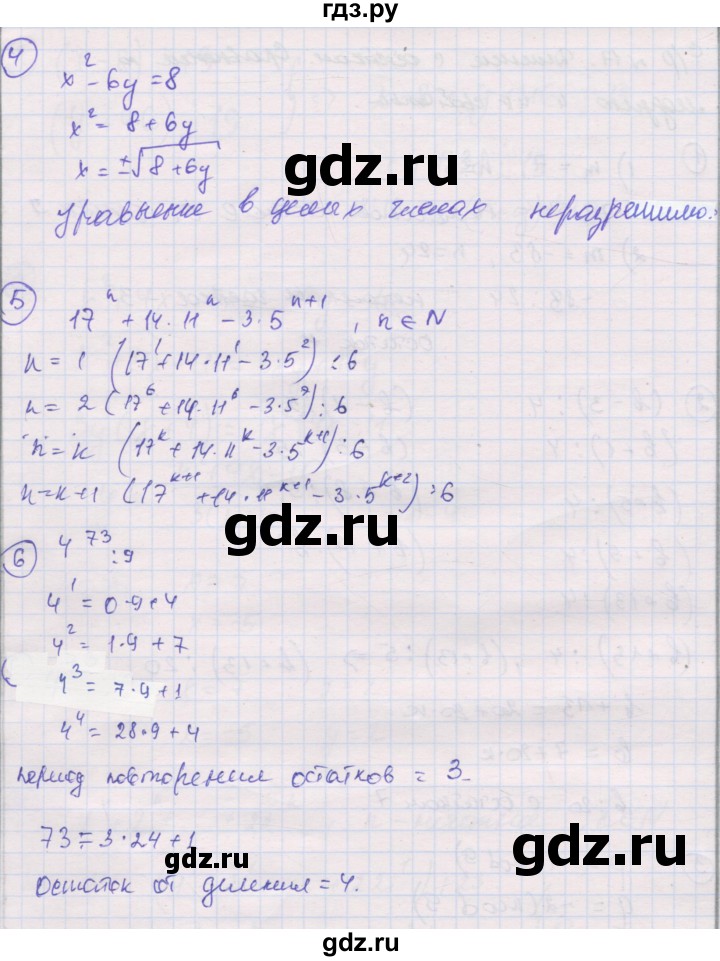 гдз.ру
4
x² - 6y = 8
x² = 8 + 6y
gdz.ru
x = ±√8 + 6y
Уравнение в целых числах неразрешимо.
gdz.ru
5
17ⁿ + 14 · 11ⁿ - 3 · 5ⁿ⁺¹, n ∈ N
n = 1 (17¹ + 14 · 11¹ - 3 · 5²) ⋮ 6
n = 2 (17⁶ + 14 · 11⁶ - 3 · 5⁷) ⋮ 6
n = k (17ᵏ + 14 · 11ᵏ - 3 · 5ᵏ⁺¹) ⋮ 6
n = k+1 (17ᵏ⁺¹ + 14 · 11ᵏ⁺¹ - 3 · 5ᵏ⁺²) ⋮ 6
gdz.ru
6
4⁷³ : 9
4¹ = 0·9+4
4² = 1·9 + 7
4³ = 7·9+1
4⁴ = 28·9 + 4
период повторения остатков = 3
73 = 3·24 + 1
gdz.ru
gdz.ru
Остаток от деления = 4.
gdz.ru